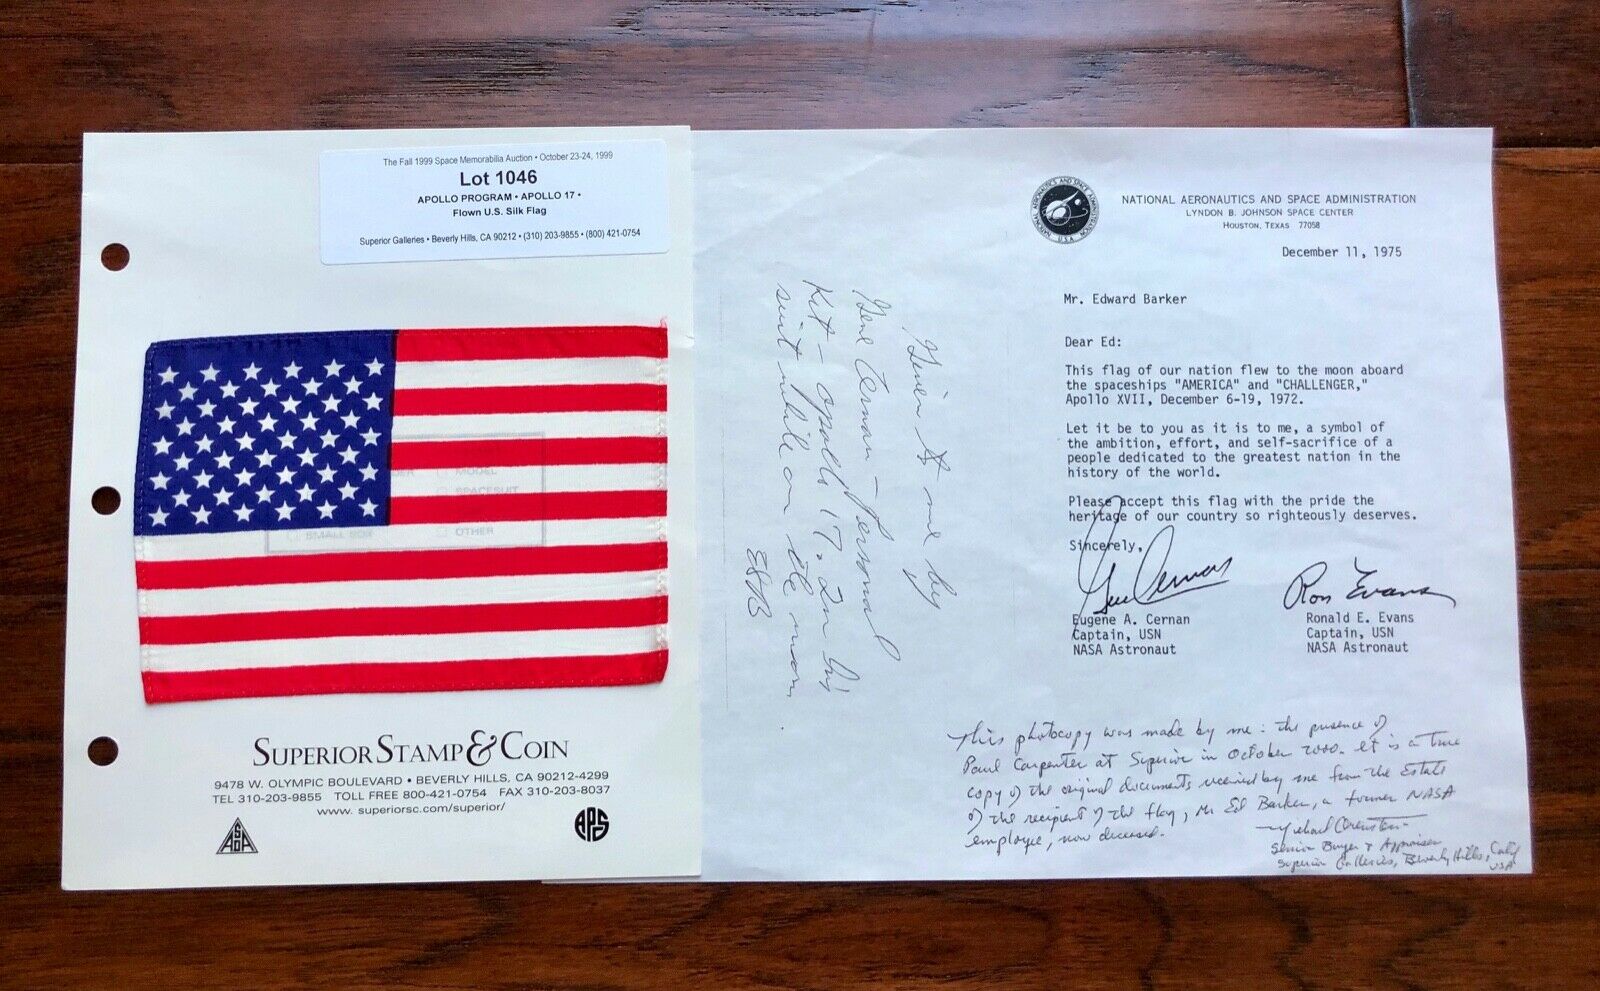 The Fall 1999 Space Memorabilia Auction • October 23-24, 1999
Lot 1046
APOLLO PROGRAM • APOLLO 17 •
Flown U.S. Silk Flag
Superior Galleries • Beverly Hills, CA 90212 • (310) 203-9855 • (800) 421-0754
MODEL
SPACESUIT
SMALL BOX
OTHER
SUPERIOR STAMP & COIN
9478 W. OLYMPIC BOULEVARD • BEVERLY HILLS, CA 90212-4299
TEL 310-203-9855 TOLL FREE 800-421-0754 FAX 310-203-8037
www. superiorsc.com/superior/
APS
Given to me by
Gene Cernan - Personal
Kit - Apollo 17. In his
suit while on the moon.
ESB
NATIONAL AERONAUTICS AND SPACE ADMINISTRATION
U.S.A.
NATIONAL AERONAUTICS AND SPACE ADMINISTRATION
LYNDON B. JOHNSON SPACE CENTER
HOUSTON, TEXAS 77058
December 11, 1975
Mr. Edward Barker
Dear Ed:
This flag of our nation flew to the moon aboard
the spaceships "AMERICA" and "CHALLENGER,"
Apollo XVII, December 6-19, 1972.
Let it be to you as it is to me, a symbol of
the ambition, effort, and self-sacrifice of a
people dedicated to the greatest nation in the
history of the world.
Please accept this flag with the pride the
heritage of our country so righteously deserves.
Sincerely,
Gene Cernan
Eugene A. Cernan
Captain, USN
NASA Astronaut
Ron Evans
Ronald E. Evans
Captain, USN
NASA Astronaut
This photocopy was made by me : the presence of
Paul Carpenter at Superior in October 2000. It is a true
copy of the original documents received by me from the Estate
of the recipient of the flag, Mr Ed Barker, a former NASA
employee, now deceased.
Michael Orenstein
Senior Buyer & Appraiser
Superior Galleries, Beverly Hills, Calif
USA